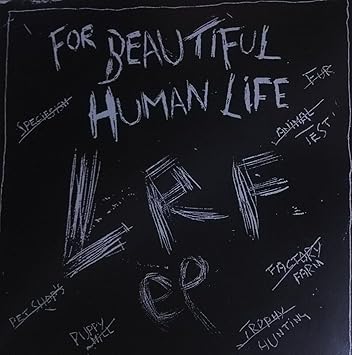 FOR BEAUTIFUL
HUMAN LIFE
SPECIESISM
FUR
ANIMAL
TEST
LRF
EP
FACTORY
FARM
PET SHOPS
PUPPY
MILL
TROPHY
HUNTING